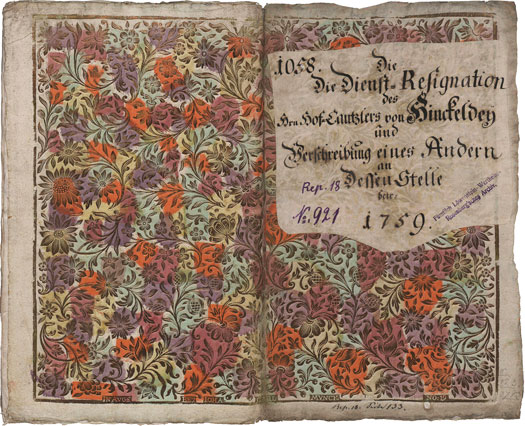 1058.
Die
Die Dienst-Resignation
des
Hrn Hof-Cantzlers von Hinckeldey
und
Verschreibung eines Andern
an
Dessen Stelle
betr.
Rep. 18
№ 921
1759.
Fürstlich Löwenstein Werth.
Archiv.
Rep. 18. 133.